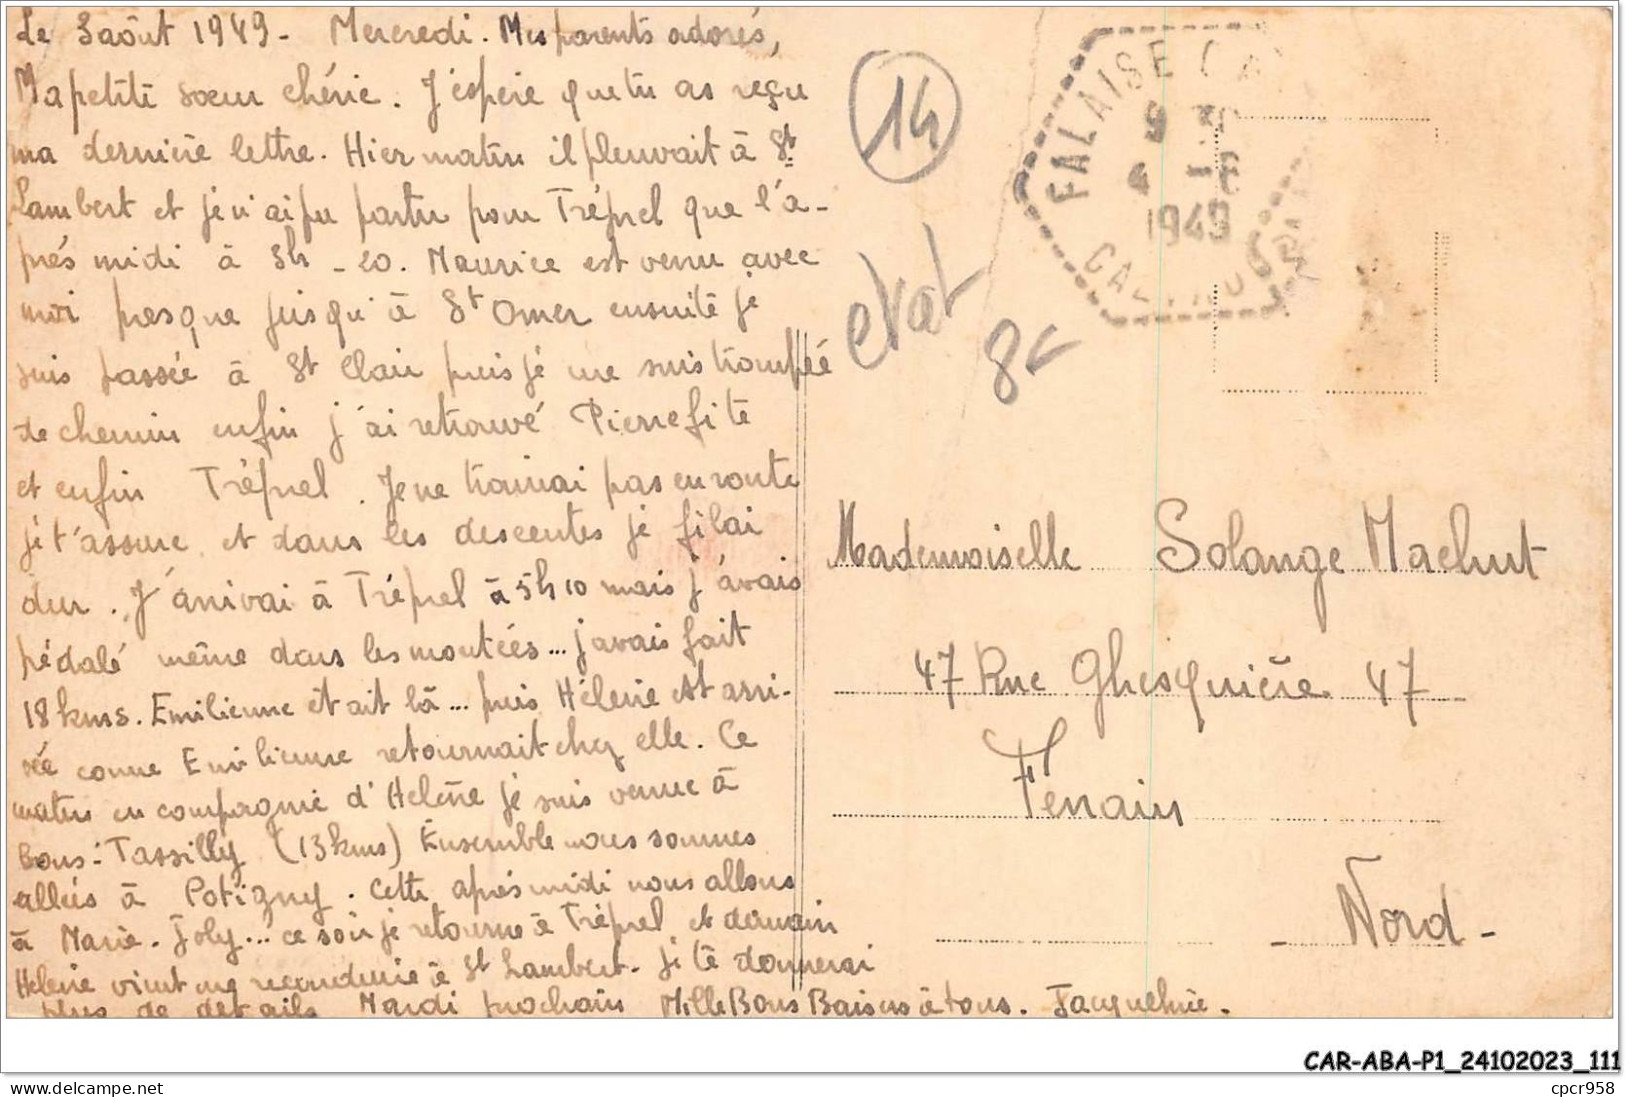 Le 3 août 1949 - Mercredi. Mes parents adorés,
Ma petite soeur chérie. J'espère que tu as reçu
ma dernière lettre. Hier matin il pleuvait à St
Lambert et je n'ai pu partir pour Tréprel que l'a-
près midi à 3h - 20. Maurice est venu avec
moi presque jusqu'à St Omer ensuite je
suis passée à St Clair puis je me suis trompée
de chemin enfin j'ai retrouvé Pierrefite
et enfin Tréprel. Je ne trainai pas en route
je t'assure et dans les descentes je filai
dur. J'arrivai à Tréprel à 5h10 mais j'avais
pédalé même dans les montées... j'avais fait
18 kms. Emilienne était là... puis Hélène est arri-
vée comme Emilienne retournait chez elle. Ce
matin en compagnie d'Hélène je suis venue à
Bons-Tassilly (13 kms) Ensemble nous sommes
allées à Potigny. Cette après midi nous allons
à Marie-Joly... ce soir je retourne à Tréprel et demain
Hélène vient me reconduire à St Lambert. Je te donnerai
plus de détails Mardi prochain Mille Bons Baisers à tous. Jacqueline.
14
etat
8
FALAISE
9 30
4 -8
1949
CALVADOS
Mademoiselle Solange Machut
47 Rue Ghesquière 47
Fenain
- Nord -
CAR-ABA-P1_24102023_111
www.delcampe.net
cpcr958